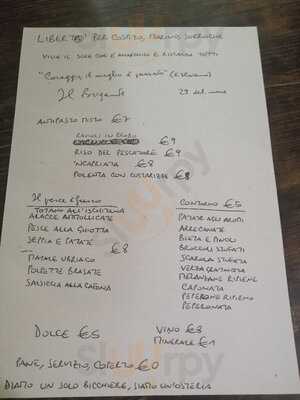 LIBERTÀ PER COSPITO, MARINO
VIVA IL SOLE CHE È ANARCHICO E RISCALDA TUTTI
"Coraggio il meglio è passato"
Il Brigante 29 del mese
ANTIPASTO MISTO €7
RAVIOLI IN BRODO €9
RISO DEL PESCATORE €9
'NCAPRIATA €8
POLENTA CON COSTARELLE €8
Il pesce è fresco
TOTANO ALL'ISCHITANA
ALACCE AMMOLLICATE
PESCE ALLA GHIOTTA
SEPPIA E PATATE
€8
MAIALE UBRIACO
POLPETTE BRASATE
SALSICCIA ALLA
CONTORNO €5
PATATE AGLI AROMI
ARRECANATE
BIETA E
BROCCOLI STUFATI
SCAROLA STUFATA
VERZA GRATINATA
MELANZANE RIPIENE
CAPONATA
PEPERONE RIPIENO
PEPERONATA
DOLCE €5
VINO €8
MINERALE €1
PANE, SERVIZIO, COPERTO €0
DIAMO UN SOLO BICCHIERE, SIAMO UN'OSTERIA
Sluurrpy